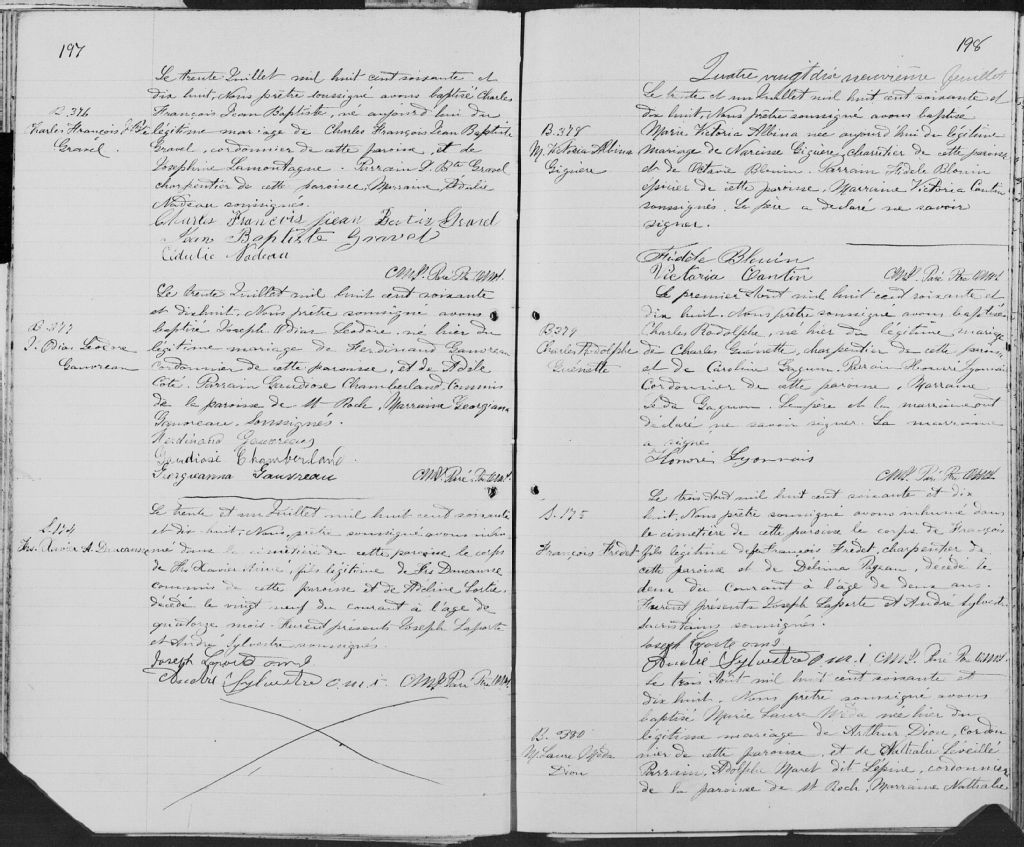 197
Le trente Juillet mil huit cent soixante et
dix huit, Nous prêtre soussigné avons baptisé Charles
B. 376
François Jean Baptiste, né aujourd'hui du
Charles François J. Bte
légitime mariage de Charles François Jean Baptiste
Gravel
Gravel, cordonnier de cette paroisse, et de
Josephine Lamontagne. Parrain J. Bte Gravel
charpentier de cette paroisse, Marraine,
Nadeau soussignés.
Charles François Jean Gravel
Jean Baptiste Gravel
Nadeau
Ptre O.M.I.
Le trente Juillet mil huit cent soixante
et dixhuit, Nous prêtre soussigné avons
B. 377
baptisé Joseph Odias né hier du
J. Odias
légitime mariage de Ferdinand Gauvreau
Gauvreau
cordonnier de cette paroisse, et de Adèle
Coté. Parrain Gaudiose Chamberland, commis
de la paroisse de St Roch, Marraine Georgiana
Gauvreau. Soussignés.
Ferdinand Gauvreau
Gaudiose Chamberland.
Georgeanna Gauvreau
Ptre O.M.I.
Le trente et un Juillet mil huit cent soixante
S. 174
et dix-huit, Nous, prêtre soussigné avons inhu-
Frs. Xavier A.
mé dans le cimetière de cette paroisse le corps
de Frs Xavier fils légitime de Frs
commis de cette paroisse et de Adeline
décédé le vingt neuf du courant à l'âge de
quatorze mois. Furent présents Joseph Laporte
et André Sylvestre soussignés.
Joseph Laporte o m I
André Sylvestre o. m. i.
Ptre O.M.I.
198
Quatre vingt dix neuvième feuillet
Le trente et un Juillet mil huit cent soixante et
dix huit, Nous prêtre soussigné avons baptisé
B. 378
Marie Victoria Albina née aujourd'hui du légitime
M. Victoria Albina
mariage de Narcisse Giguère, charretier de cette paroisse
Giguère
et de Octavie Blouin. Parrain Fidèle Blouin
épicier de cette paroisse, Marraine Victoria Cantin
soussignés. Le père a déclaré ne savoir
signer.
Fidèle Blouin
Victoria Cantin
Ptre O.M.I.
Le premier Aout mil huit cent soixante et
dix huit. Nous prêtre soussigné avons baptisé
B 379
Charles Rodolphe, né hier du légitime mariage
Charles Rodolphe
de Charles Guénette, charpentier de cette paroisse,
Guénette
et de Caroline Gagnon. Parrain Honoré Lyonnais
Cordonnier de cette paroisse, Marraine
Léda Gagnon. Le père et la marraine ont
déclaré ne savoir signer.
a signé.
Honoré Lyonnais
Ptre O.M.I.
Le trois Aout mil huit cent soixante et dix
S. 175
huit, Nous prêtre soussigné avons inhumé dans
le cimetière de cette paroisse le corps de François
François Fredet
fils légitime de François Fredet, charpentier de
cette paroisse et de Délima Pageau, décédé le
deux du courant à l'âge de deux ans.
Furent présents Joseph Laporte et André Sylvestre
Sacristains soussignés.
Joseph Laporte omI
André Sylvestre o. m. i
Ptre O.M.I.
Le trois Aout mil huit cent soixante et
dix huit. Nous prêtre soussigné avons
baptisé Marie Laure née hier du
B. 380
légitime mariage de Arthur Dion, cordon
M. Laure
nier de cette paroisse, et de Léveillé
Dion
Parrain, Adolphe Maret dit Lépine, cordonnier
de la paroisse de St Roch, Marraine Nathalie